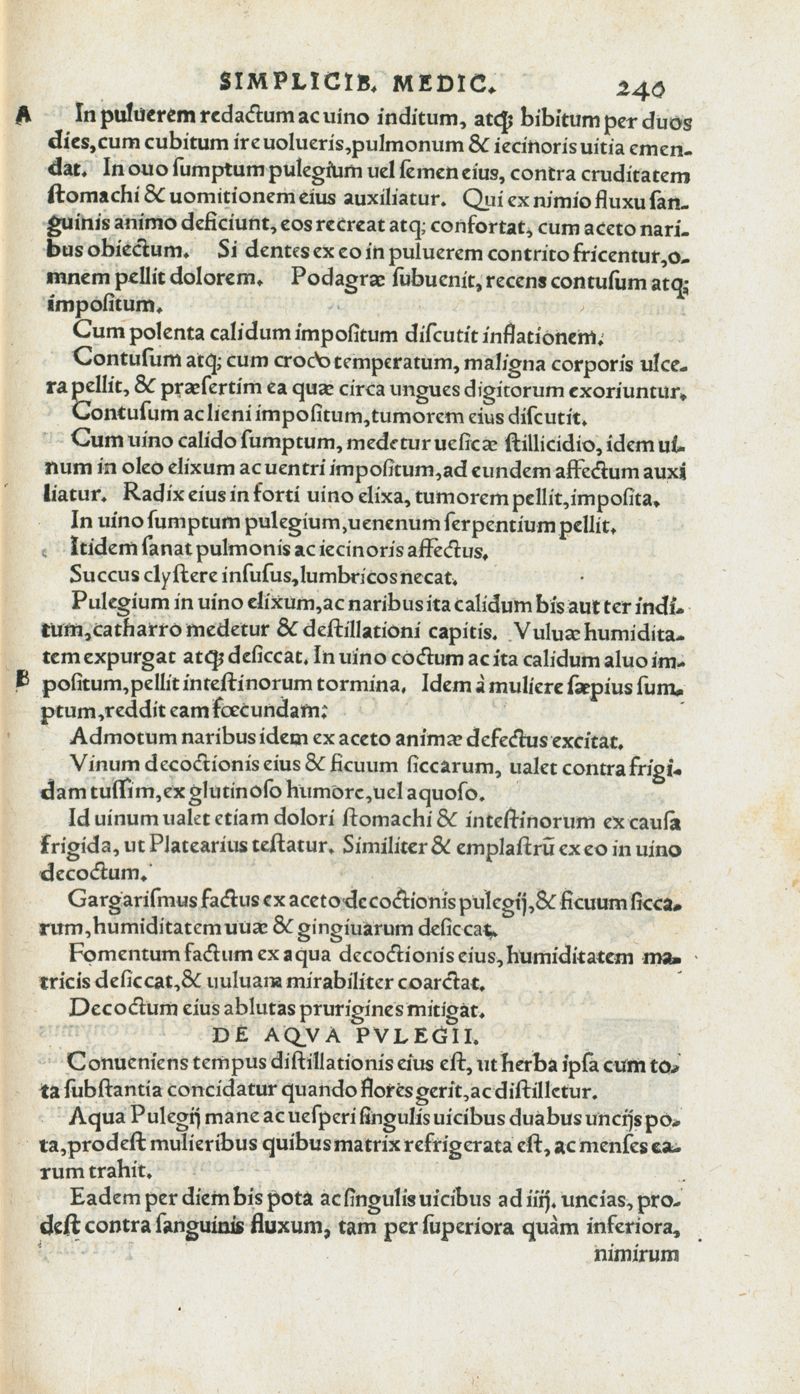 SIMPLICIB. MEDIC. 240
A In puluerem redactum ac uino inditum, atq; bibitum per duos
dies, cum cubitum ire uolueris, pulmonum & iecinoris uitia emen-
dat. In ouo sumptum pulegium uel semen eius, contra cruditatem
stomachi & uomitionem eius auxiliatur. Qui ex nimio fluxu san-
guinis animo deficiunt, eos recreat atq; confortat, cum aceto nari-
bus obiectum. Si dentes ex eo in puluerem contrito fricentur, o-
mnem pellit dolorem. Podagræ subuenit, recens contusum atq;
impositum.
Cum polenta calidum impositum discutit inflationem.
Contusum atq; cum croco temperatum, maligna corporis ulce-
ra pellit, & præsertim ea quæ circa ungues digitorum exoriuntur.
Contusum ac lieni impositum, tumorem eius discutit.
Cum uino calido sumptum, medetur uesicæ stillicidio, idem ui-
num in oleo elixum ac uentri impositum, ad eundem affectum auxi
liatur. Radix eius in forti uino elixa, tumorem pellit, imposita.
In uino sumptum pulegium, uenenum serpentium pellit.
Itidem sanat pulmonis ac iecinoris affectus.
Succus clystere infusus, lumbricos necat.
Pulegium in uino elixum, ac naribus ita calidum bis aut ter indi-
tum, catharro medetur & destillationi capitis. Vuluæ humidita-
tem expurgat atq; desiccat. In uino coctum ac ita calidum aluo im-
B positum, pellit intestinorum tormina. Idem à muliere sæpius sum-
ptum, reddit eam fœcundam:
Admotum naribus idem ex aceto animæ defectus excitat.
Vinum decoctionis eius & ficuum siccarum, ualet contra frigi-
dam tussim, ex glutinoso humore, uel aquoso.
Id uinum ualet etiam dolori stomachi & intestinorum ex causa
frigida, ut Platearius testatur. Similiter & emplastrū ex eo in uino
decoctum.
Gargarismus factus ex aceto decoctionis pulegij, & ficuum sicca-
rum, humiditatem uuæ & gingiuarum desiccat.
Fomentum factum ex aqua decoctionis eius, humiditatem ma-
tricis desiccat, & uuluam mirabiliter coarctat.
Decoctum eius ablutas prurigines mitigat.
DE AQVA PVLEGII.
Conueniens tempus distillationis eius est, ut herba ipsa cum to-
ta substantia concidatur quando flores gerit, ac distilletur.
Aqua Pulegij mane ac uesperi singulis uicibus duabus uncijs po-
ta, prodest mulieribus quibus matrix refrigerata est, ac menses ea-
rum trahit.
Eadem per diem bis pota ac singulis uicibus ad iiij. uncias, pro-
dest contra sanguinis fluxum, tam per superiora quàm inferiora,
nimirum